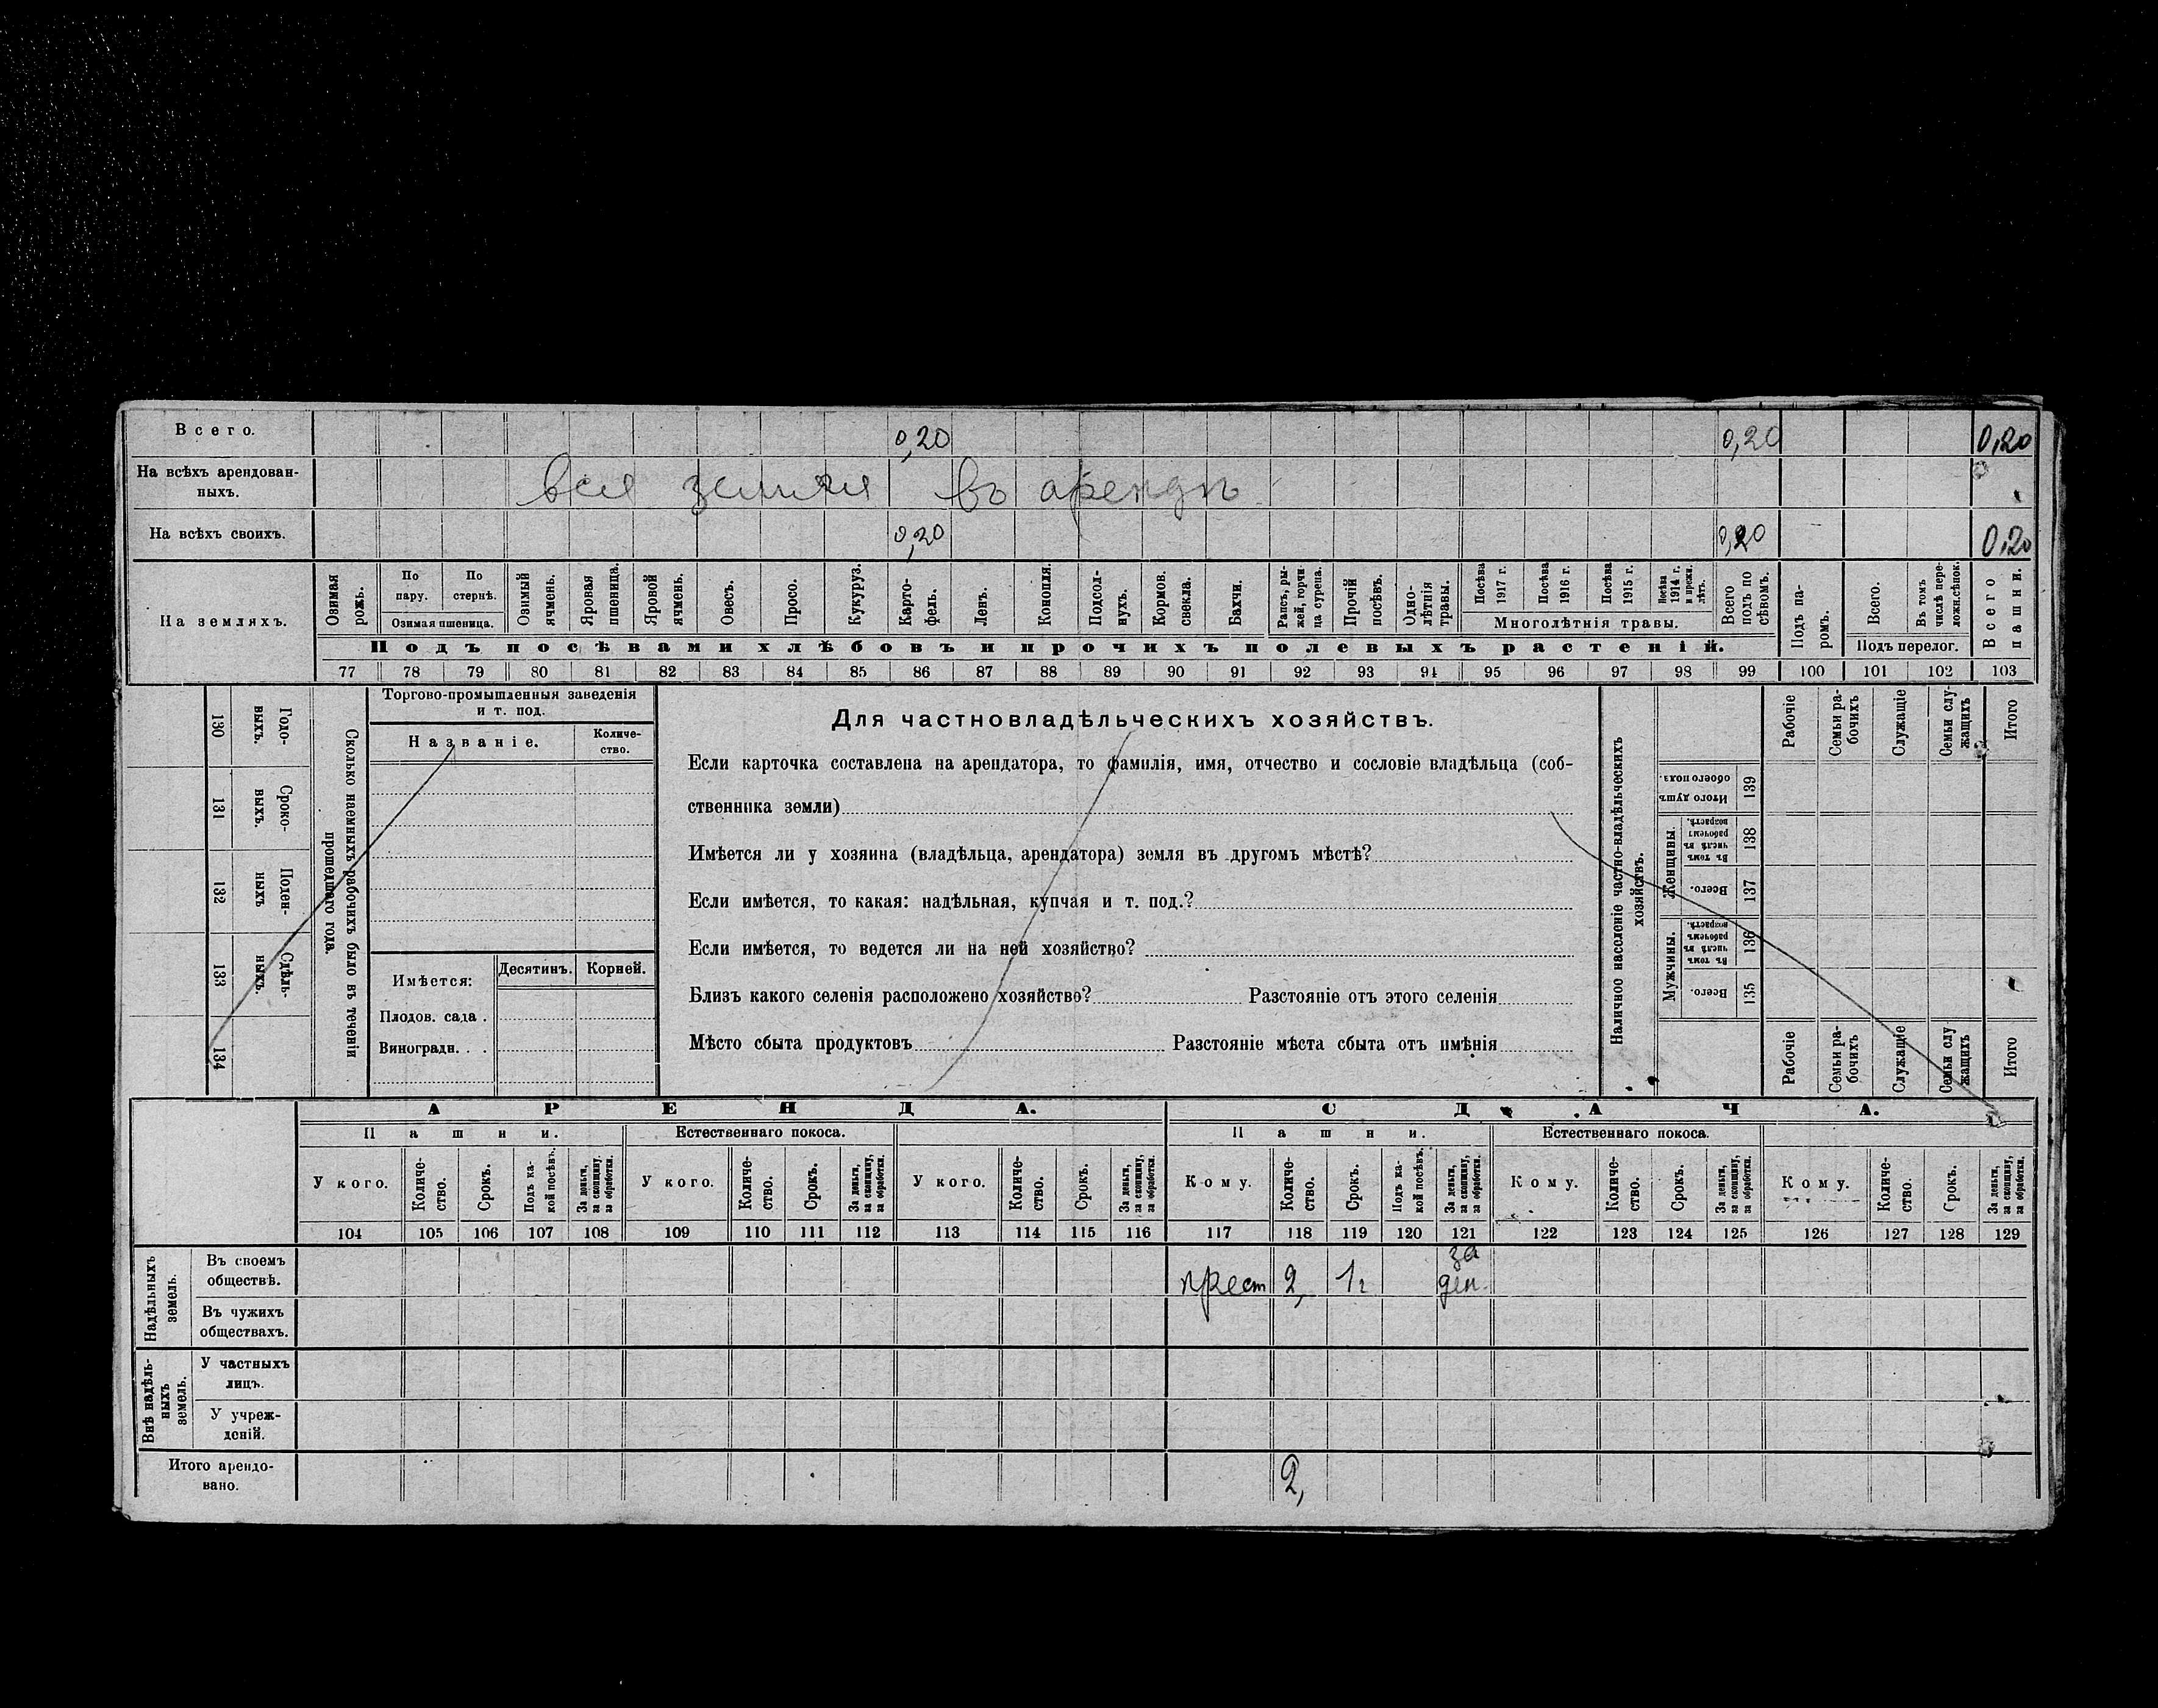 Всего. 0,20 0,20 0,20
На всѣхъ арендован-
ныхъ. вся земля въ арендѣ
На всѣхъ своихъ. 0,20 0,20 0,20
На земляхъ.
Озимая рожь.
По пару.
По стернѣ.
Озимая пшеница.
Озимый ячмень.
Яровая пшеница.
Яровой ячмень.
Овесъ.
Просо.
Кукуруз.
Карто-
фель.
Ленъ.
Конопля.
Подсол-
нухъ.
Кормов. свекла.
Бахчи.
Рапсъ, ры-
жей, горчи-
ца сурепа.
Прочій посѣвъ.
Одно-
лѣтнія травы.
Посѣва 1917 г.
Посѣва 1916 г.
Посѣва 1915 г.
Посѣва 1914 г. и прежн. лѣтъ.
Многолѣтнія травы.
Всего подъ по
сѣвомъ.
Подъ па-
ромъ.
Всего.
Въ томъ числѣ пере-
ложн. сѣнок.
Подъ перелог.
Всего пашни.
Подъ посѣвами хлѣбовъ и прочихъ полевыхъ растеній.
77 78 79 80 81 82 83 84 85 86 87 88 89 90 91 92 93 94 95 96 97 98 99 100 101 102 103
130 Годо-
выхъ.
131 Сроко-
выхъ.
132 Поден-
ныхъ
133 Сдѣль-
ныхъ.
134
Сколько наемныхъ рабочихъ было въ теченіи
прошедшаго года.
Торгово-промышленныя заведенія
и т. под.
Названіе.
Количе-
ство.
Имѣется: Десятинъ. Корней.
Плодов. сада .
Виноградн. . .
Для частновладѣльческихъ хозяйствъ.
Если карточка составлена на арендатора, то фамилія, имя, отчество и сословіе владѣльца (соб-
ственника земли)
Имѣется ли у хозяина (владѣльца, арендатора) земля въ другомъ мѣстѣ?
Если имѣется, то какая: надѣльная, купчая и т. под.?
Если имѣется, то ведется ли на ней хозяйство?
Близъ какого селенія расположено хозяйство? Разстояніе отъ этого селенія
Мѣсто сбыта продуктовъ Разстояніе мѣста сбыта отъ имѣнія
Наличное населеніе частно-владѣльческихъ
хозяйствъ.
Рабочіе
Семьи ра-
бочихъ
Служащіе
Семьи слу-
жащихъ
Итого
Итого душъ обоего пола. 139
Женщины.
Въ томъ числѣ въ рабочемъ возрастѣ. 138
Всего. 137
Мужчины.
Въ томъ числѣ въ рабочемъ возрастѣ. 136
Всего. 135
Рабочіе
Семьи ра-
бочихъ
Служащіе
Семьи слу
жащихъ
Итого
АРЕНДА. СДАЧА.
Пашни. Естественнаго покоса. Пашни. Естественнаго покоса.
У кого.
Количе-
ство.
Срокъ.
Подъ ка-
кой посѣвъ.
За деньги, за скопщину, за обработки.
У кого.
Количе-
ство.
Срокъ.
За деньги, за скопщину, за обработки.
У кого.
Количе-
ство.
Срокъ.
За деньги, за скопщину, за обработки.
Кому.
Количе-
ство.
Срокъ.
Подъ ка-
кой посѣвъ.
За деньги, за скопщину, за обработки.
Кому.
Количе-
ство.
Срокъ.
За деньги, за скопщину, за обработки.
Кому.
Количе-
ство.
Срокъ.
За деньги, за скопщину, за обработки.
104 105 106 107 108 109 110 111 112 113 114 115 116 117 118 119 120 121 122 123 124 125 126 127 128 129
Надѣльныхъ
земель.
Въ своемъ
обществѣ. крест 2, 1г за
ден.
Въ чужихъ
обществахъ.
Внѣ надѣль-
ныхъ
земель.
У частныхъ
лицъ.
У учреж-
деній.
Итого арендо-
вано. 2,